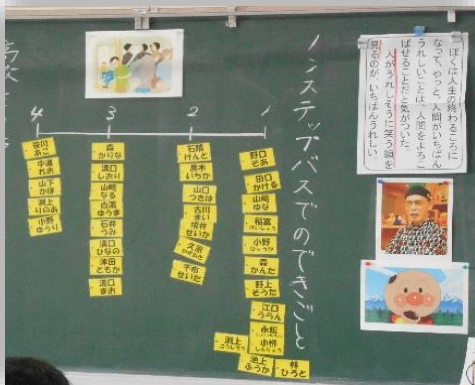 ぼくは人生の終わるころに
なって、やっと、人間がいちばん
うれしいことは、人間をよろこ
ばせることだと気がついた。
人がうれしそうに笑う顔を
見るのが、いちばんうれしい
ノンステップバスでのできごと
1
2
3
4
野口
そあ
田口
かける
山崎
ゆな
稲富
小野
森
かんた
野上
そうた
江口
うらん
永松
小栁
渕上
池上
ふうか
梓
ひろと
石隈
けんと
黒木
いちか
山口
つきほ
古川
まい
坂井
せいか
久原
千布
せいた
森
かりな
溝口
しおり
山崎
なる
白濱
ゆうま
石井
うみ
溝口
ひなの
津田
ともか
溝口
まお
笹川
あこ
中道
れお
山下
かほ
渕上
りのあ
小野
ゆうり